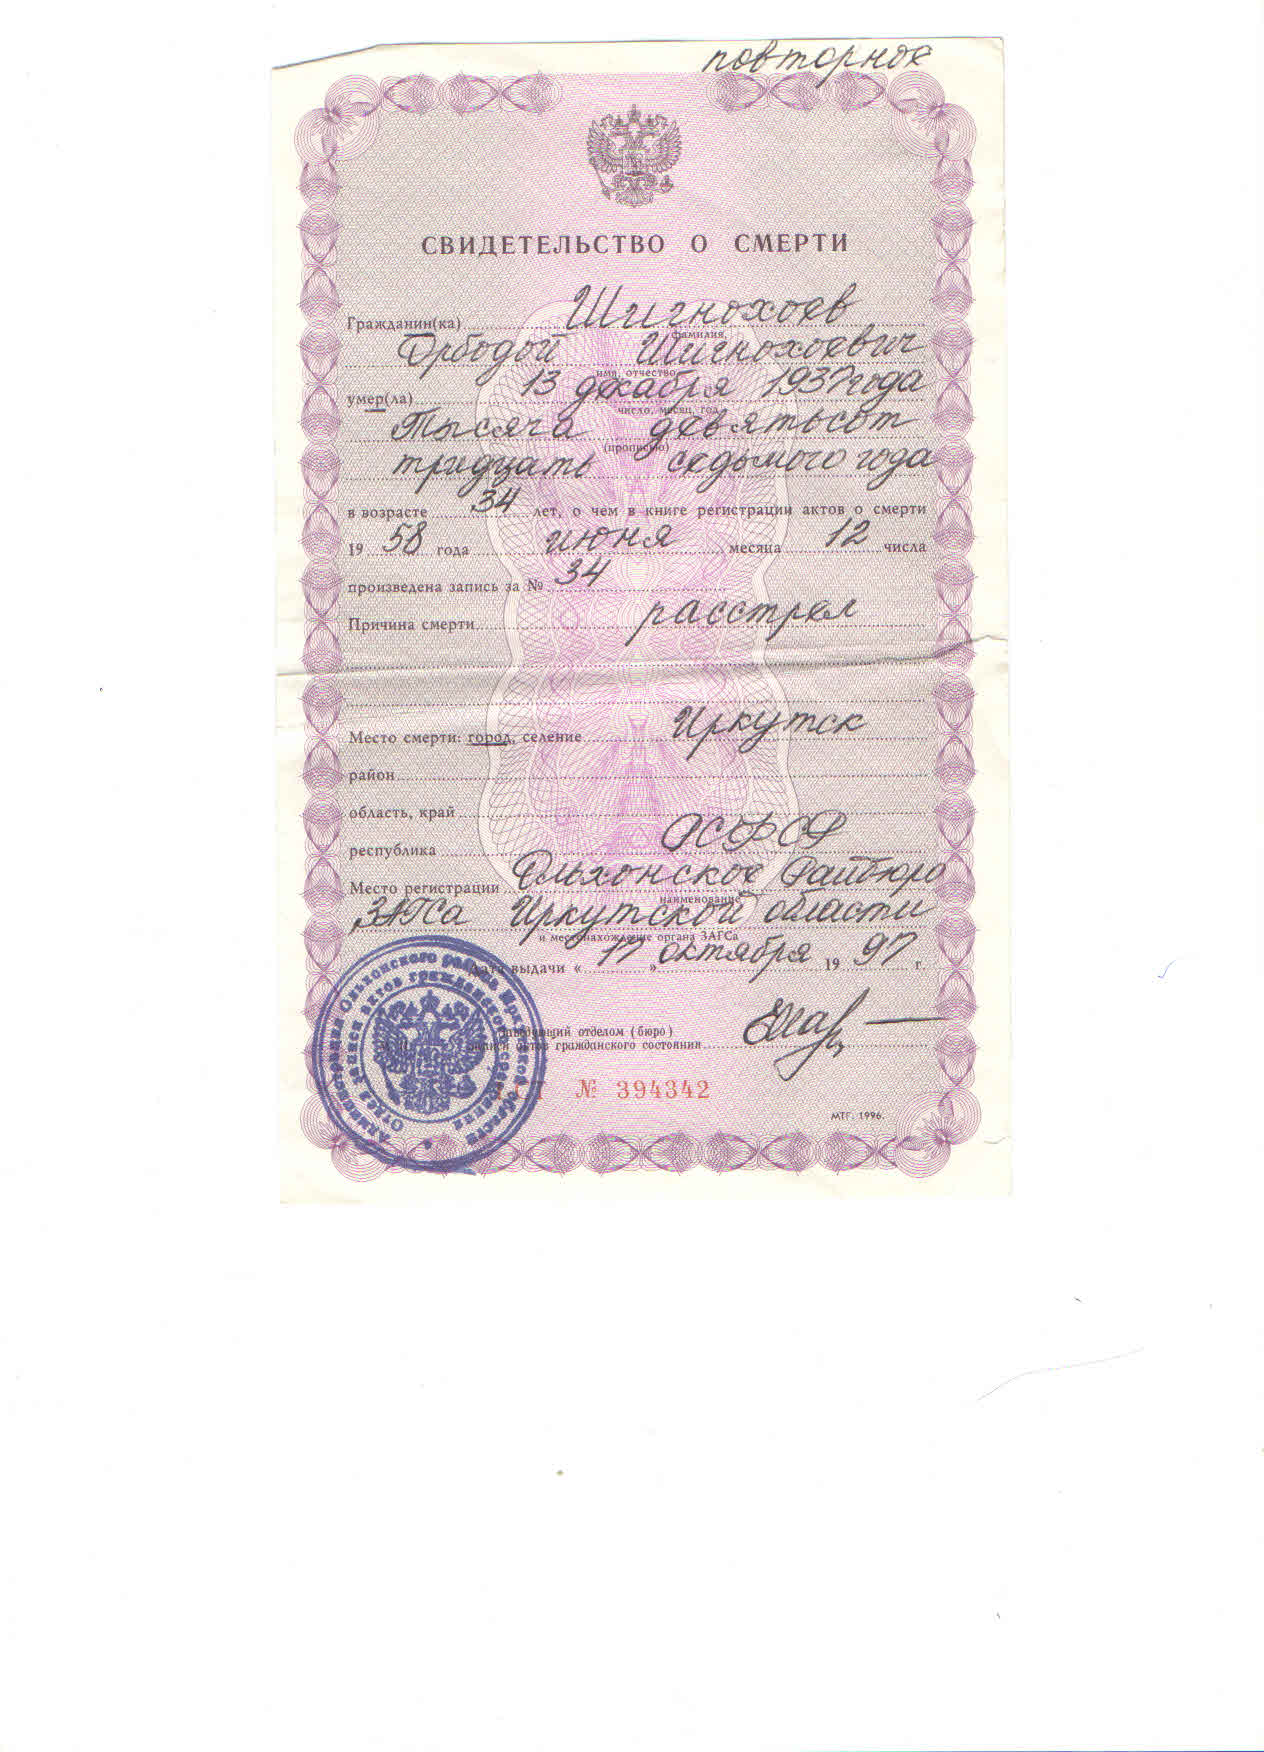 повторное
СВИДЕТЕЛЬСТВО О СМЕРТИ
Гражданин(ка) Шигнохоев
фамилия,
Орбодой Шигнохоевич
имя, отчество
умер(ла) 13 декабря 1937 года
число, месяц, год
Тысяча девятьсот
(прописью)
тридцать седьмого года
в возрасте 34 лет, о чем в книге регистрации актов о смерти
19 58 года июня месяца 12 числа
произведена запись за № 34
Причина смерти расстрел
Место смерти: город, селение Иркутск
район
область, край
республика РСФСР
Место регистрации Ольхонское Райбюро
наименование
ЗАГСа Иркутской области
и местонахождение органа ЗАГСа
Дата выдачи « 17 » октября 19 97 г.
Заведующий отделом (бюро)
записи актов гражданского состояния
№ 394342
МТГ. 1996.
Администрация Ольхонского района Иркутской области
Отдел записи актов гражданского состояния